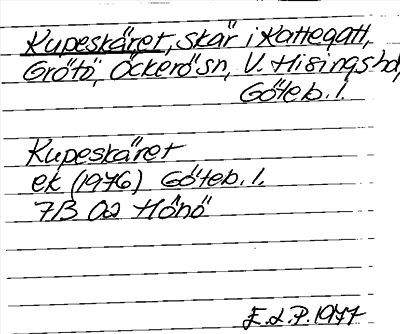 Kupeskäret, skär i Kattegatt,
Grötö, Öckerö sn, V. Hisings hd,
Göteb. l.
Kupeskäret
ek (1976) Göteb. l.
7B 0a Hönö
E.L.P. 1977